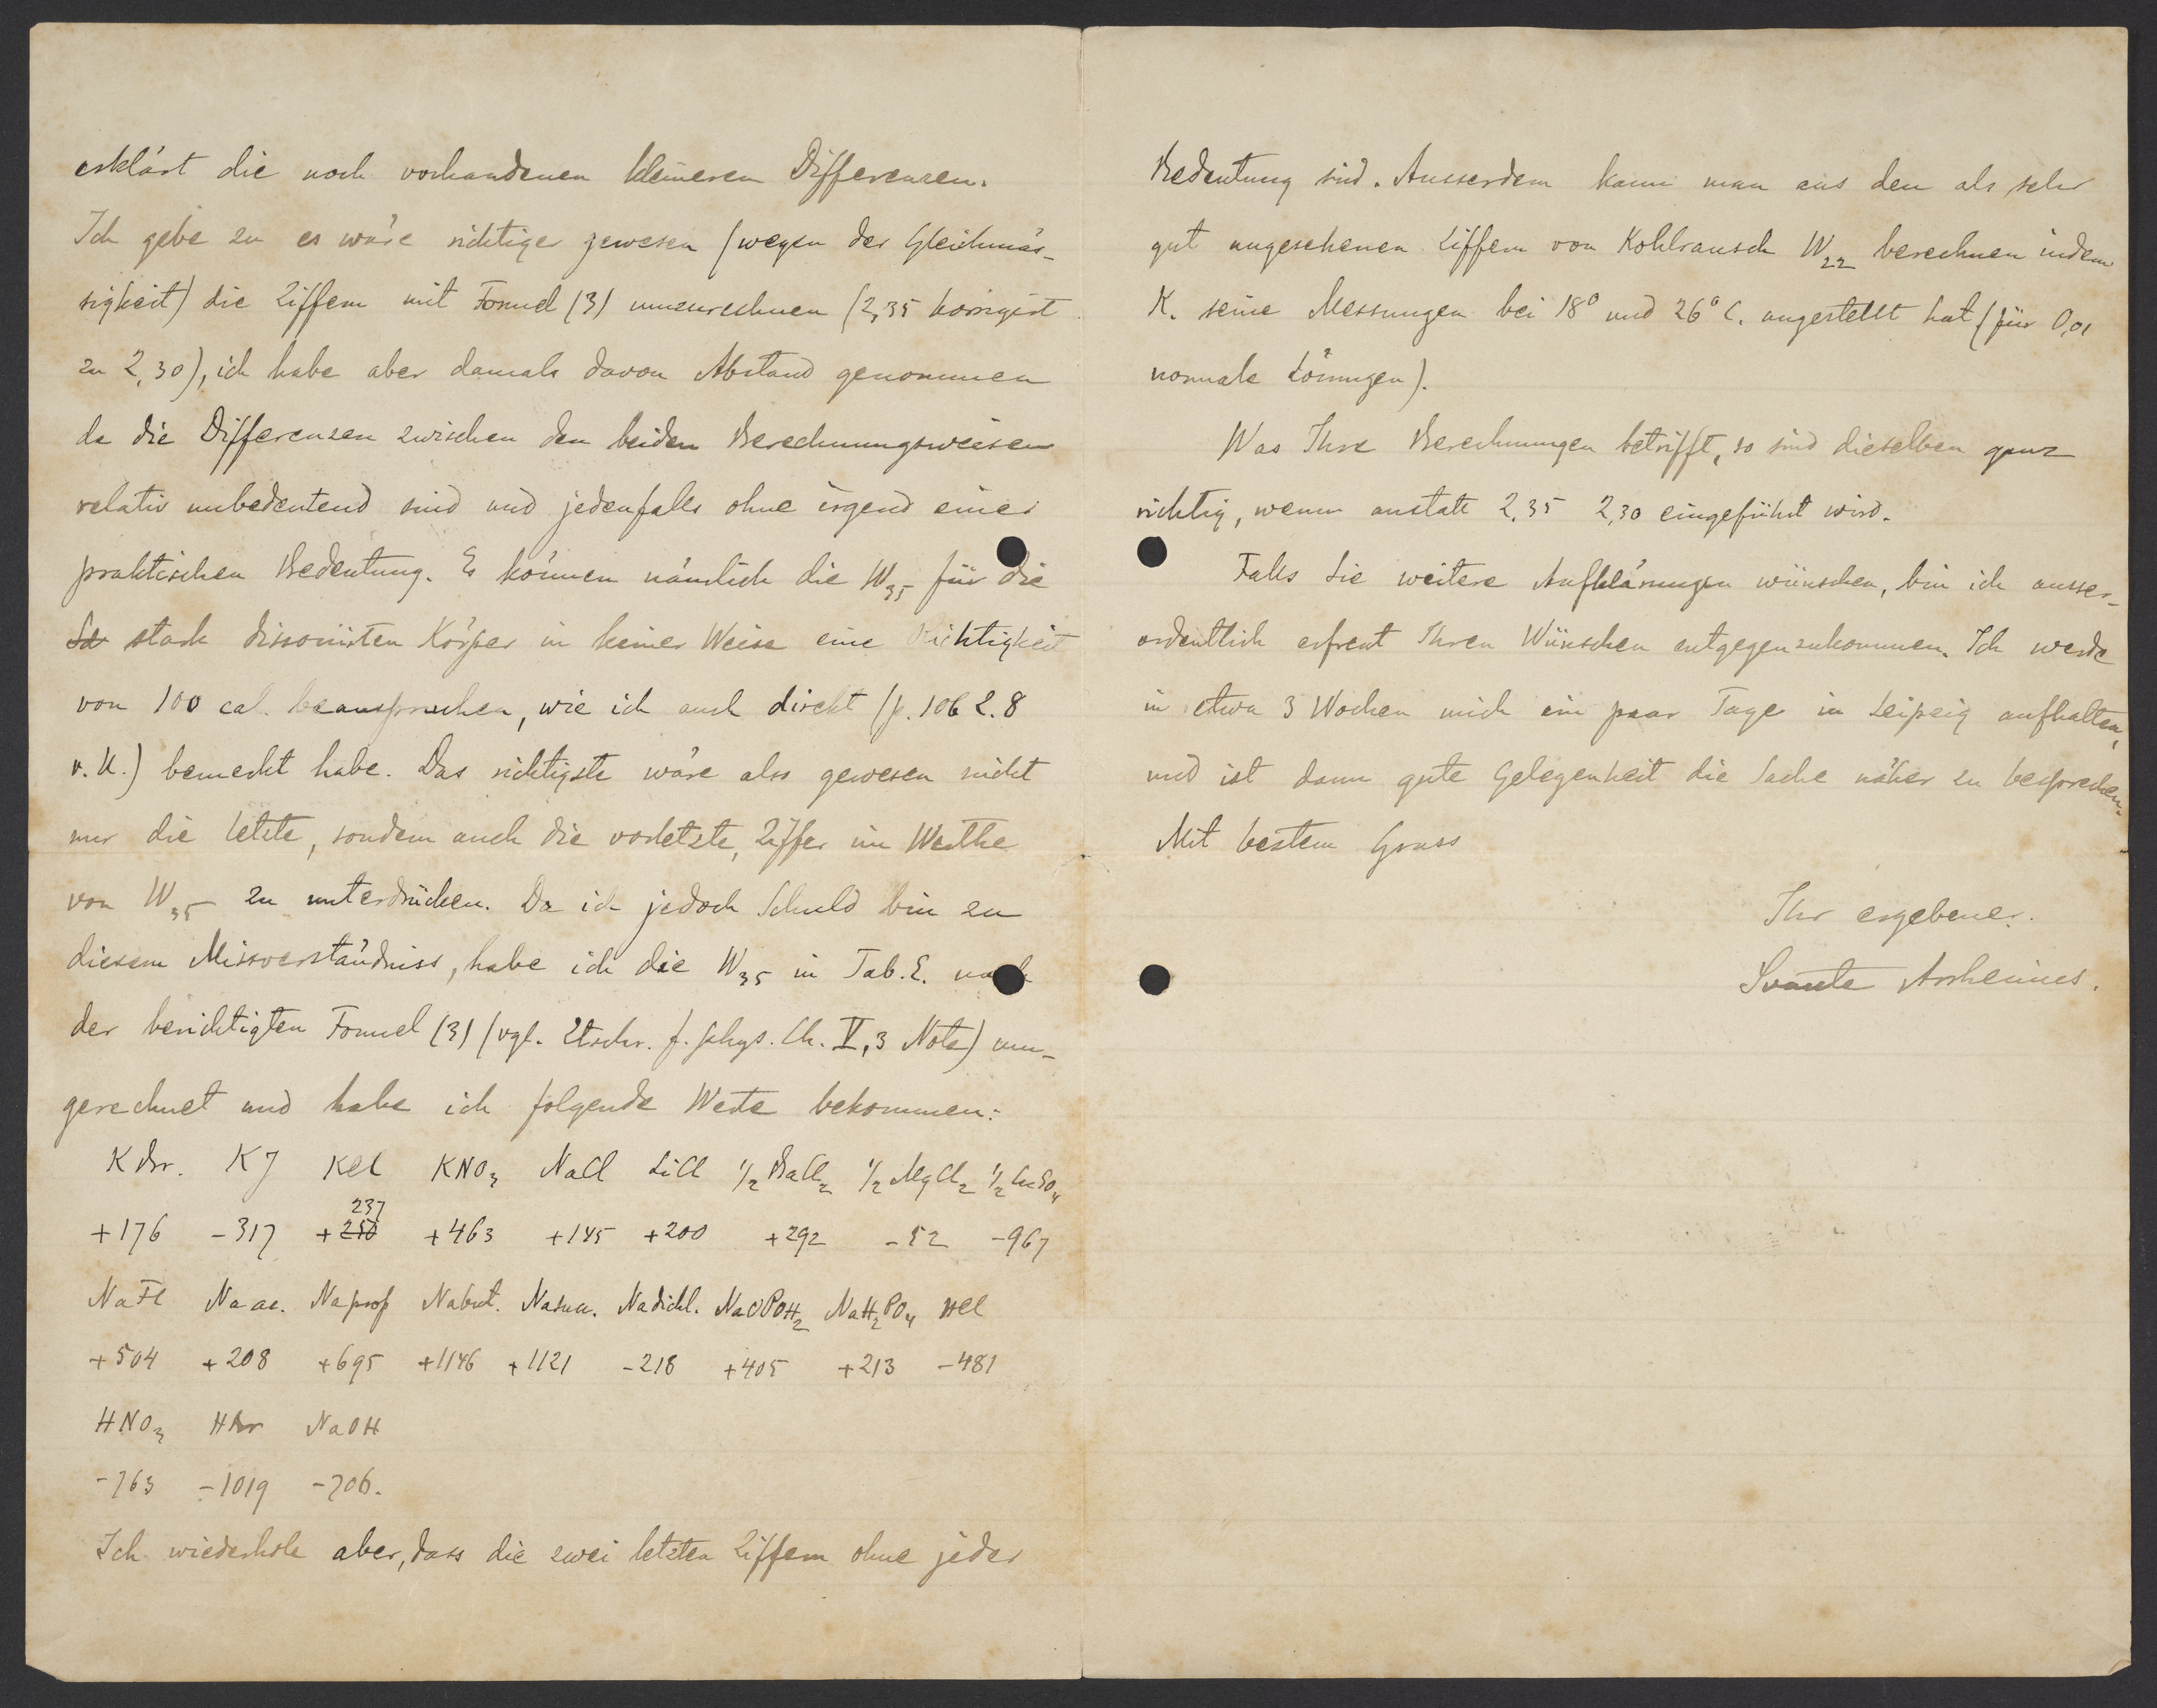 erklärt die noch vorhandenen kleineren Differenzen.
Ich gebe zu es wäre richtiger gewesen (wegen der Gleichmäs-
sigkeit) die Ziffern mit Formel (3) umzurechnen (2,35 korrigirt
zu 2,30), ich habe aber damals davon Abstand genommen
da die Differenzen zwischen den beiden Berechnungsweisen
relativ unbedeutend sind und jedenfalls ohne irgend einer
praktischen Bedeutung. Es können nämlich die W35 für die
stark dissociirten Körper in keiner Weise eine Richtigkeit
von 100 cal. beanspruchen, wie ich auch direkt (p. 106 Z. 8
v. U.) bemerkt habe. Das richtigste wäre also gewesen nicht
nur die letzte, sondern auch die vorletzte, Ziffer im Werthe
von W35 zu unterdrücken. Da ich jedoch Schuld bin zu
diesem Missverständniss, habe ich die W35 in Tab. E. nach
der berichtigten Formel (3) (vgl. Ztschr. f. phys. Ch. V, 3 Note) um-
gerechnet und habe ich folgende Werte bekommen:
KBr. KJ KCl KNO3 NaCl LiCl 1/2 BaCl2 1/2 MgCl2 1/2 CuSO4
237
+176 -317 +250 +463 +145 +200 +292 -52 -967
NaFl Na ac. Na prop Na but. Na suc. Na dichl. NaOPOH2 NaH2PO4 HCl
+504 +208 +695 +1146 +1121 -218 +405 +213 -481
HNO3 HBr NaOH
-763 -1019 -706.
Ich wiederhole aber, dass die zwei letzten Ziffern ohne jeder
Bedeutung sind. Ausserdem kann man aus den als sehr
gut angesehenen Ziffern von Kohlrausch W22 berechnen indem
K. seine Messungen bei 18° und 26° C. angestellt hat (für 0,01
normale Lösungen).
Was Ihre Berechnungen betrifft, so sind dieselben ganz
richtig, wenn anstatt 2,35 2,30 eingeführt wird.
Falls Sie weitere Aufklärungen wünschen, bin ich ausser-
ordentlich erfreut Ihren Wünschen entgegenzukommen. Ich werde
in etwa 3 Wochen mich ein paar Tage in Leipzig aufhalten,
und ist dann gute Gelegenheit die Sache näher zu besprechen.
Mit bestem Gruss
Ihr ergebener.
Svante Arrhenius.